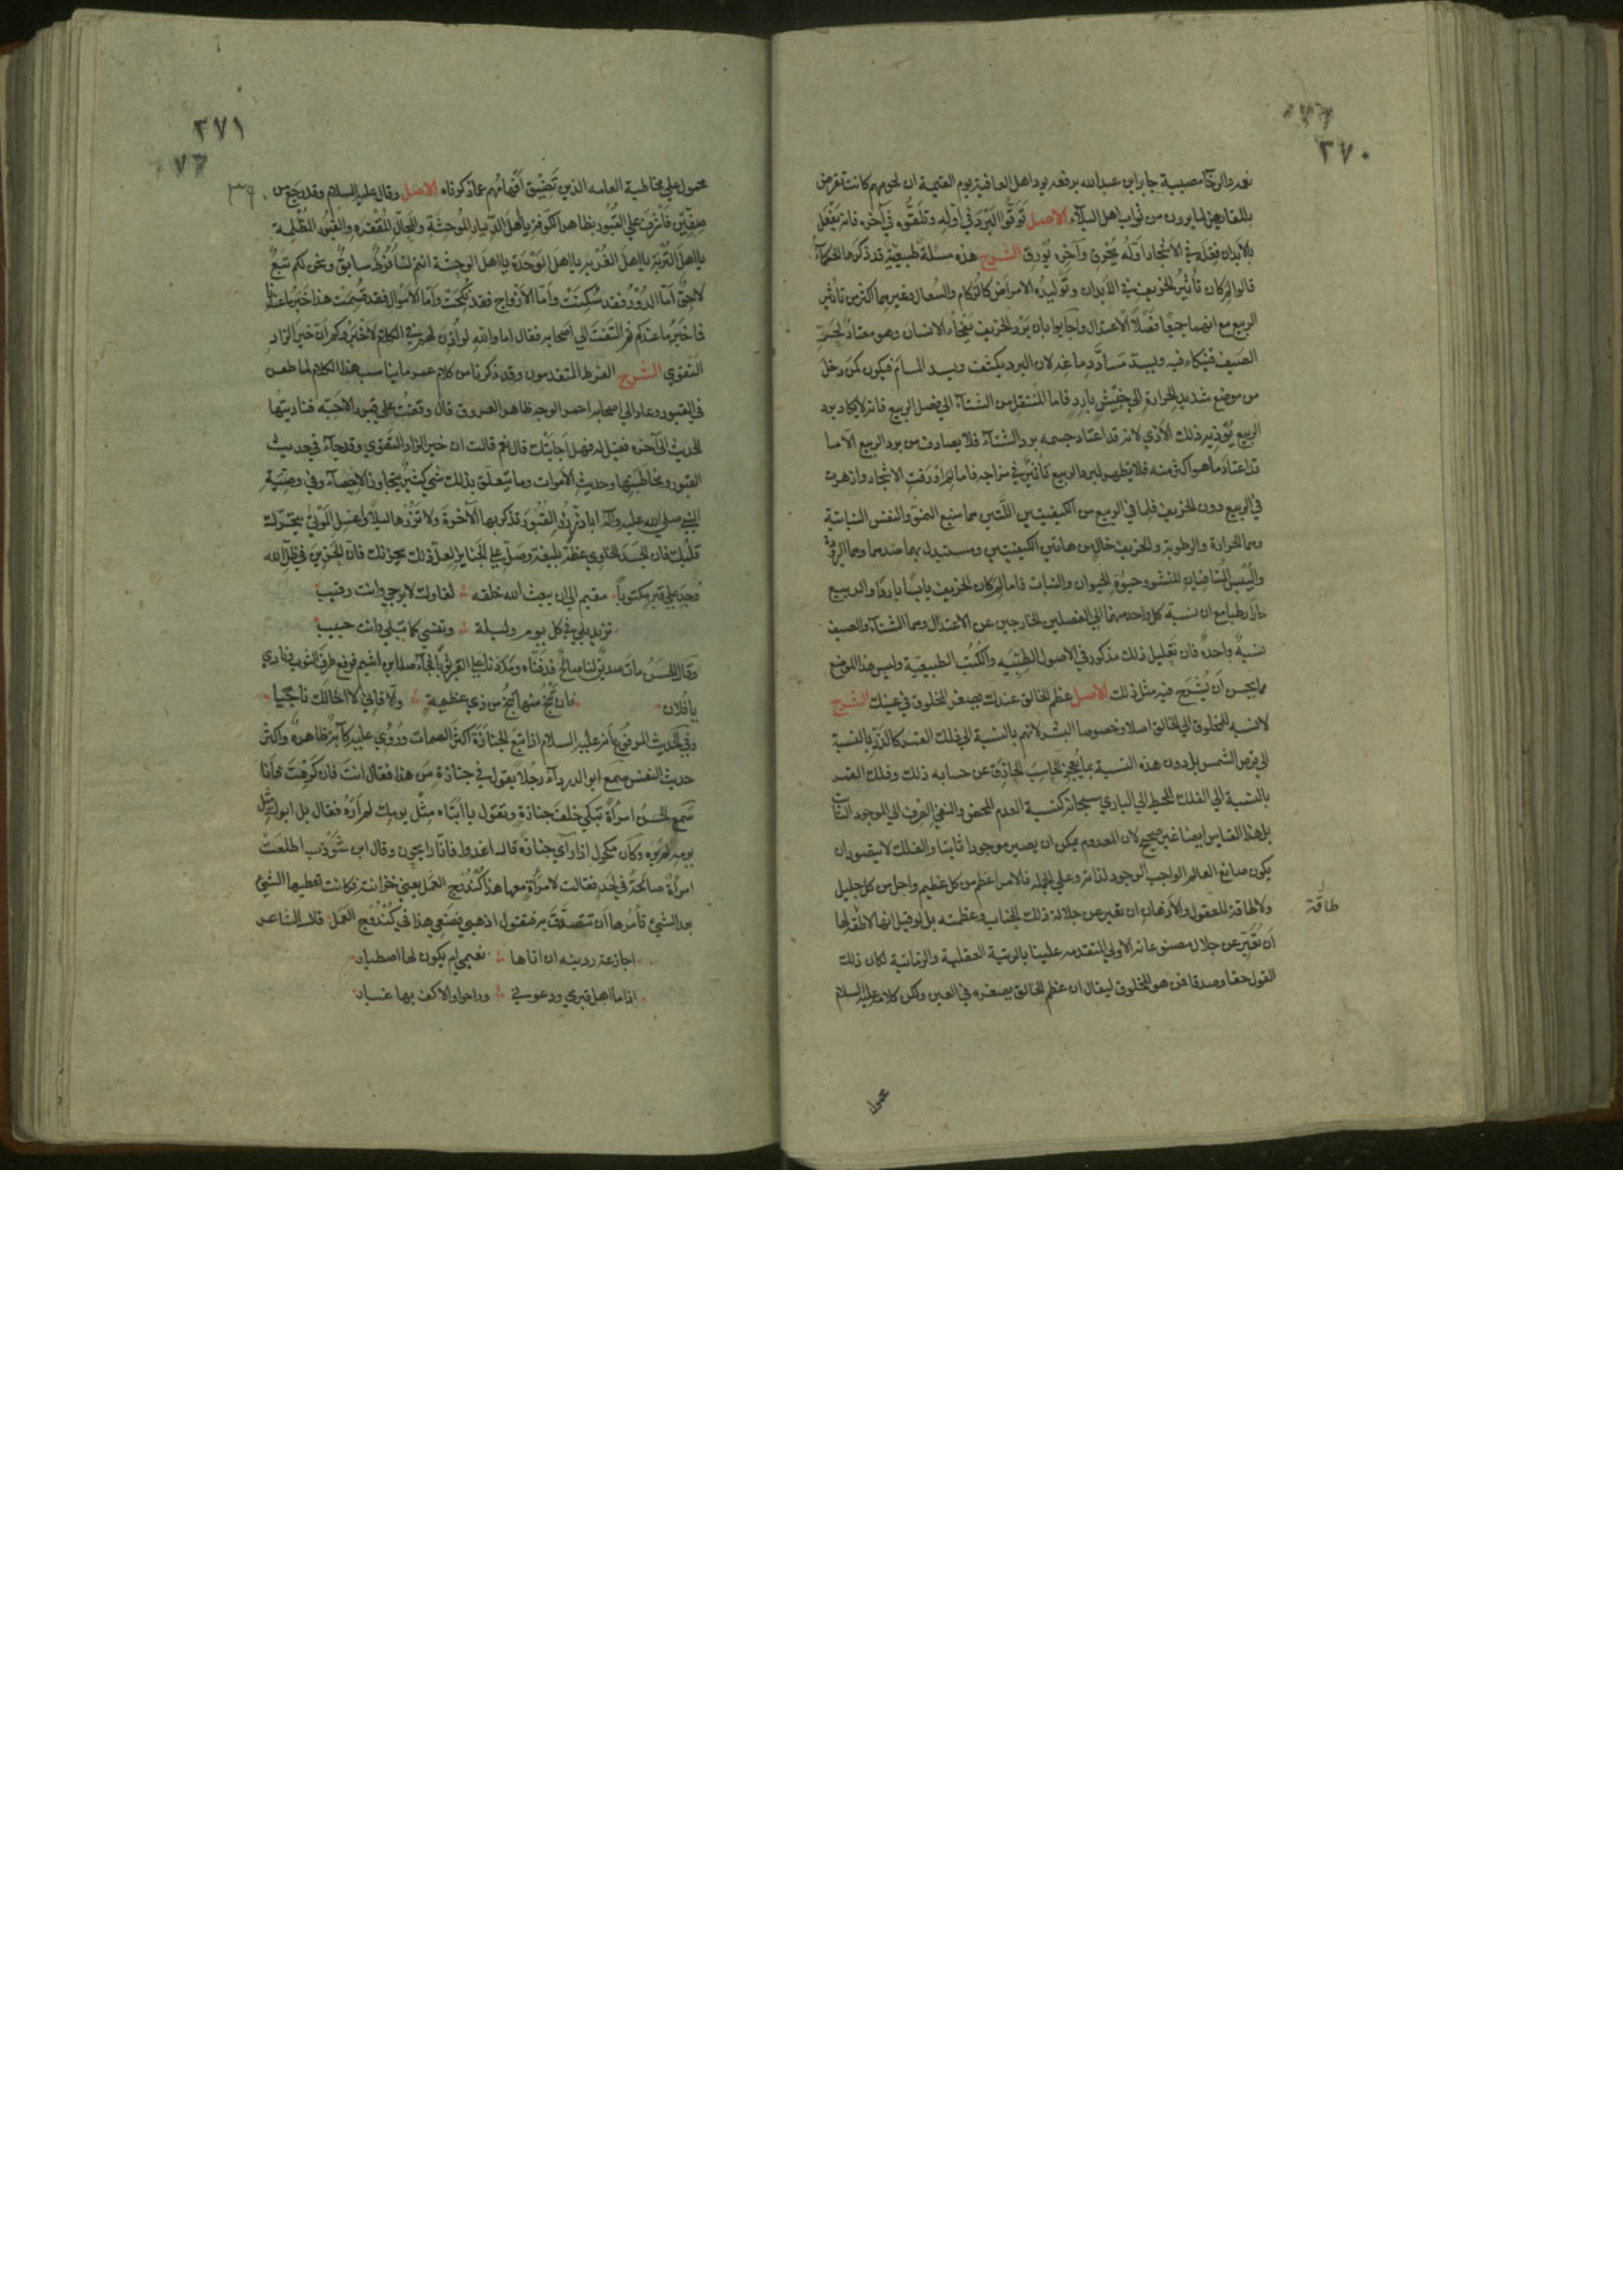 ٣٧٠
بالمقاريض لما يرون من ثواب اهل البلاء الاصل تَوَقَّوا البَرْدَ في اوّلِه وتَلَقَّوْه في آخره فانه يَفْعَل
بالابدان فِعْلَه في الاشجار اوّلُه يُحْرِق وآخِره يُوْرِق الشرح هذه مسئلة طبيعيّة قد ذكرها الحكماءُ
قالوا لِمَ كان تأثيرُ الخريف في الابدان وتوليدُه الامراض كالزكام والسُعال وغيرهما اكثر من تأثير
الربيع مع انهما جميعًا فَصْلَا الاعتدال واجابوا بان بَرْد الخريف يَفْجأ الانسان وهو معتادٌ لحَرِّ
الصيف فينكاء فيه ويسد مَسامَّ دماغه لان البرد يكثف ويسد المسام فيكون كمَن دخل
من موضع شديد الحرارة الى خَيْش بارد فاما المُنتقل من الشتاء الى فصل الربيع فانه لا يكاد برد
الربيع يُؤذيه ذلك الأذي لانه قد اعتاد جسمه برد الشتاء فلا يصادف من برد الربيع الا ما
قد اعتاد ما هو اكثر منه فلا يظهر لبرد الربيع تأثيرٌ في مزاجه فاما لِمَ اَورَقتِ الاشجار وازهرت
في الربيع دون الخريف فلما في الربيع من الكيفيتين اللّتين هما منبع النموّ والنفس النباتية
وهما الحرارة والرطوبة والخريف خال من هاتين الكيفيتين ومستبدل بهما ضدهما وهما البرودة
واليُبس المُنافيان للنشو وحيوة الحيوان والنبات فاما لِمَ كان الخريف يابسًا باردًا والربيع
حارًا رطبا مع ان نسبة كل واحد منهما الى الفصلين الخارجين عن الاعتدال وهما الشتاء والصيف
نسبةٌ واحدةٌ فان تعليل ذلك مذكور في الاصول الطِبّيّه والكُتُب الطبيعيّة وليس هذا الموضع
مما يحسن أن يُشْرَح فيه مثل ذلك الاصل عظم الخالق عندك يصغر المخلوق في عينك الشرح
لا نسبه للمخلوق الى الخالق اصلا وخصوصا البشر لانهم بالنسبة الى فلك القمر كالذرّ بالنسبة
الى قرص الشمس بل دون هذه النسبة بما يُعجِز الحاسِبَ الحاذِق عن حسابه ذلك وفلك القمر
بالنسبة الى الفلك المحيط الى الباري سبحانه كنسبة العدم المحض والنفي الصرف الى الموجود الثابت
بل هذا القياس ايضا غير صحيح لان المعدوم يمكن ان يصير موجودا ثابتا والفلك لا يتصور ان
يكون صانع العالم الواجب الوجود لذاته وعلى الجمله فالامر اعظم من كل عظيم واجل من كل جليل
ولا طاقة للعقول والاذهان ان تعبر عن جلالة ذلك الجناب وعظمته بل لو قيل انها لا طاقة لها
طاقة
أن تُعَبِّر عن جلال مصنوعاته الاولى المتقدمه علينا بالرتبة العقلية والزمانية لكان ذلك
القول حقا وصدقا فمن هو المخلوق ليقال ان عظم الخالق يصغره في العين ولكن كلامه عليه السلام
محمول
٣٧١
محمول على مخاطبة العامه الذين تَضِيْق أفهامُهم عما ذكرناه الاصل وقال عليه السلام وقد رجع من
صِفّيْن فأشرف على القُبُور بظاهر الكوفة يا أهلَ الدّيار المُوحِشَة والمحالّ المُقْفِرَه والقُبُور المُظْلِمة
يا اهلَ التُّرْبَةِ يا اهلَ الغُرْبة يا اهلَ الوَحْدَة يا اهل الوحشة انتم لنا فَرَطٌ سابقٌ ونحن لكم تَبَعٌ
لاحِقٌ أمّا الدُوْرُ فقد سُكِنَتْ وأمّا الأزواج فقد نُكِحَتْ وأما الأموال فقد قُسِمَتْ هذا خَبَرُ ما عندنا
فما خَبَرُ ما عندكم ثم التَفَتَ الى أصحابه فقال اما والله لو أُذِنَ لهم في الكلام لأخْبَرُوكم أنّ خيرَ الزادِ
التقوي الشرح الفرط المتقدمون وقد ذكرنا من كلام عمر ما يناسب هذا الكلام لما طعن
في القبور وعاد الى اصحابه احمر الوجه ظاهر العروق قال وقفتُ على قبور الاحبّه فناديتها
الحديث الى آخره فقيل له فهل أجابتك قال نعم قالت ان خير الزاد التقوي وقد جآء في حديث
القبور ومخاطبتها وحديث الاموات وما يتعلّق بذلك شيءٌ كثيرٌ يتجاوز الاحصآء وفي وصيّة
النبي صلى الله عليه وآله ابا ذرّ زُرِ القُبُورَ تذكر بها الآخرةَ ولا تَزُرْها ليلًا وغَسِل المَوْتَى يتحرّك
قلبُك فان الجَسَدَ الخاوي عظةٌ بليغة وصَلّ على الجنايز لعلّ ذلك يحزنك فانّ الحزينَ في ظلّ الله
وُجِدَ على قبرٍ مكتوبًا مقيم الى ان يبعث الله خلقه لقاوك لا يرجي وانت رقيب
تزيد بلي في كل يوم وليلة وتنسي كما تبلي وانت حبيب
وقال الحسنُ مات صديق لنا صالحٌ فدَفَنّاه ومَدَدنا على القبر ثوبًا فجآء صلة ابن اشيم فرفع طرفَ الثوب ونادي
يا فلان فان تَنْجُ منها تَنْجُ من ذي عظيمة والا فاني لا اخالك ناجيا
وفي الحديث المرفوع أنه عليه السلام اذا تبع الجنازَةَ اكثَرَ الصمات ورُؤي عليه كآبةٌ ظاهرةٌ واكثر
حديث النفس سمع ابو الدردآء رجلًا يقول في جنازة مَن هذا فقال انتَ فان كَرِهْتَ فأنا
سَمع الحسنُ امرأةً تبكي خلف جنازةٍ وتقول يا ابتاه مثل يومك لم أرَهُ فقال بل ابوك مثل
يومه لم يره وكان مكحول اذا رآي جنازة قال اغدوا فانا رايحون وقال ابن شَوْذَب اطلعَتْ
امرأة صالحةٌ في لَحدٍ فقالت لامرأةٍ معها هذا كُنْدُوج العمل يعني خزانته فكانت تعطيها الشيءَ
بعد الشيء تأمرها أن تتصدّق به فتقول اذهبي فضعي هذا في كُنْدُوج العَمَل قال الشاعر
اجازعة ردينه ان اتاها نعيي ام يكون لها اصطبار
اذا ما اهل قبري ودعوني وراحوا والاكف بها غبار